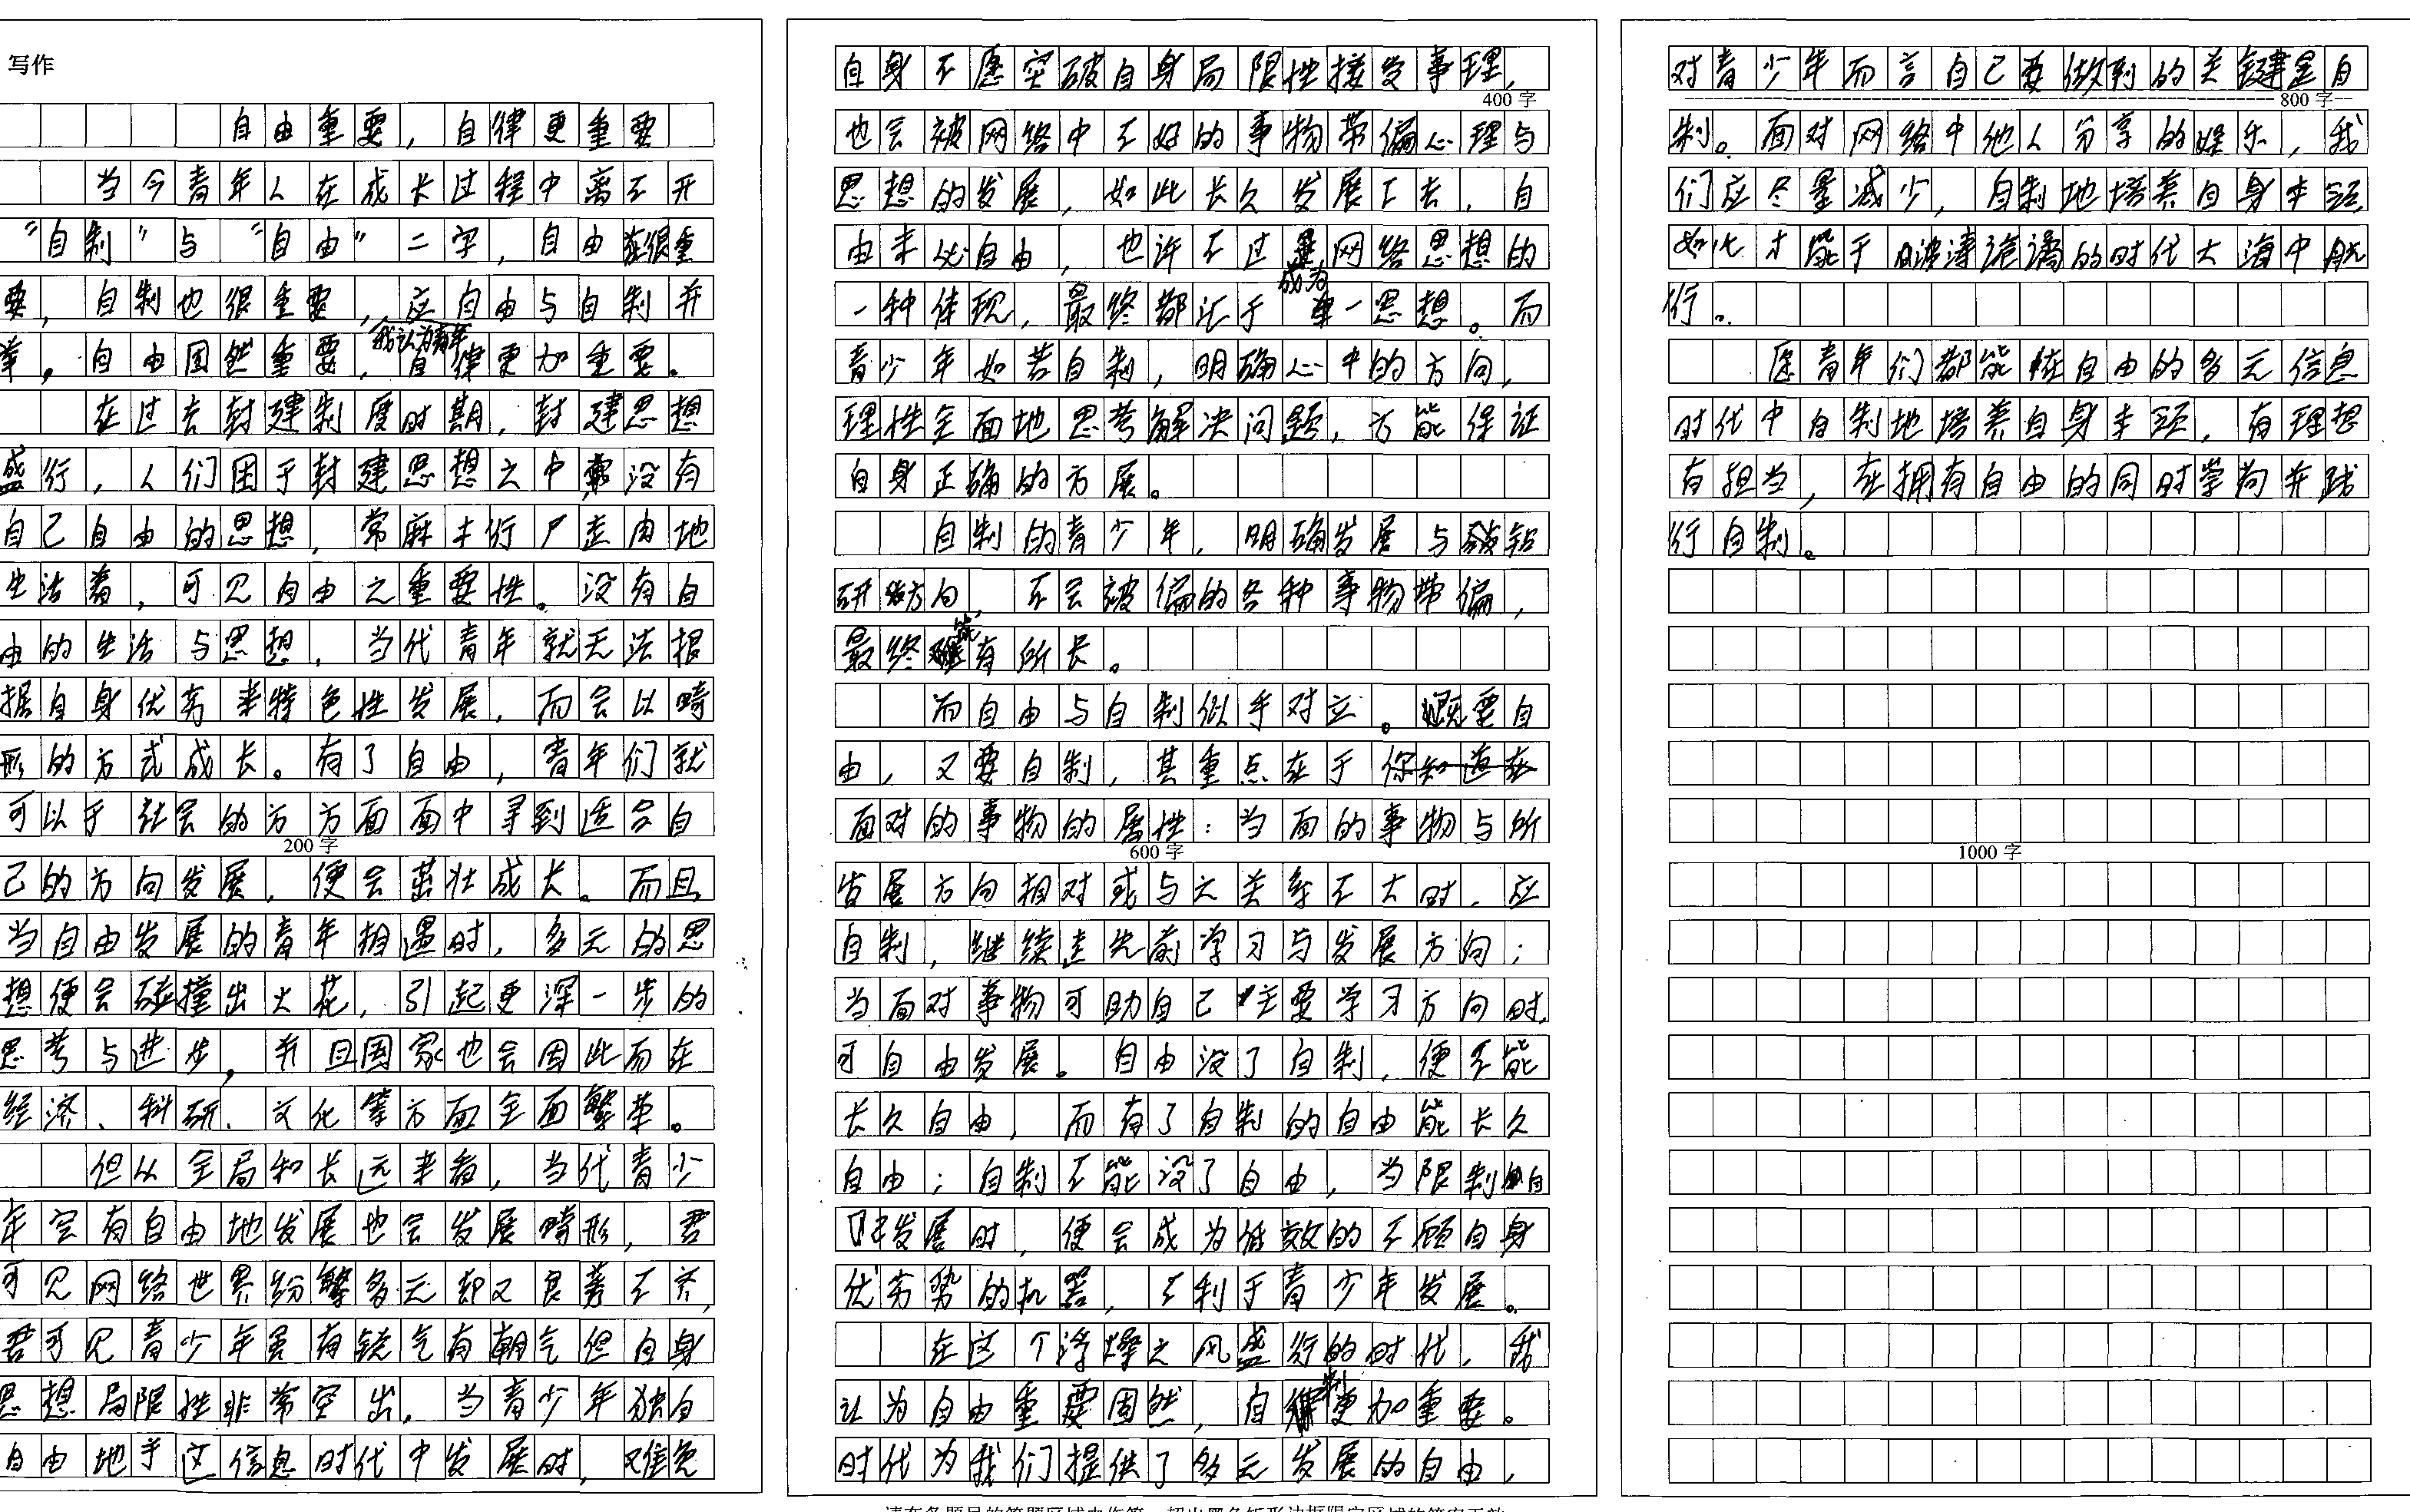 写作
自由重要，自律更重要
当今青年人在成长过程中离不开
“自制”与“自由”二字，自由很重
要，自制也很重要，应自由与自制并
举。自由固然重要，我认为青年自律更加重要。
在过去封建制度时期，封建思想
盛行，人们困于封建思想之中没有
自己自由的思想，常麻木行尸走肉地
生活着，可见自由之重要性。没有自
由的生活与思想，当代青年就无法根
据自身优劣来特色性发展，而会以畸
形的方式成长。有了自由，青年们就
可以于社会的方方面面中寻到适合自
200字
己的方向发展，便会茁壮成长。而且
当自由发展的青年相遇时，多元的思
想便会碰撞出火花，引起更深一步的
思考与进步，并且国家也会因此而在
经济、科研、文化等方面全面繁革。
但从全局和长远来看，当代青少
年空有自由地发展也会发展畸形，君
可见网络世界纷繁多元却又良莠不齐，
君可见青少年虽有锐气有朝气但自身
思想局限性非常突出，当青少年独自
自由地于这信息时代中发展时，难免
自身不愿突破自身局限性接发事理，
400字
也会被网络中不好的事物带偏心理与
思想的发展，如此长久发展下去，自
由未必自由，也许不过是网络思想的
一种体现，最终都汇于成为单一思想。而
青少年如若自制，明确心中的方向，
理性全面地思考解决问题，方能保证
自身正确的方展。
自制的青少年，明确发展与钻
研方向，不会被偏的各种事物带偏，
最终能有所长。
而自由与自制似乎对立。既要自
由，又要自制，其重点在于
面对的事物的属性：当面的事物与所
600字
发展方向相对或与之关系不大时，应
自制，继续走先前学习与发展方向；
当面对事物可助自己主要学习方向时，
可自由发展。自由没了自制，便不能
长久自由，而有了自制的自由能长久
自由；自制不能没了自由，当限制自
己发展时，便会成为低效的不顾自身
优劣势的机器，不利于青少年发展。
在这个浮燥之风盛行的时代，我
认为自由重要固然，自制更加重要。
时代为我们提供了多元发展的自由，
对青少年而言自己要做到的关键是自
800字
制。面对网络中他人分享的娱乐，我
们应尽量减少，自制地培养自身本领，
如此才能于波涛诡谲的时代大海中航
行。
愿青年们都能在自由的多元信息
时代中自制地培养自身本领，有理想
有担当，在拥有自由的同时学尚并践
行自制。
1000字